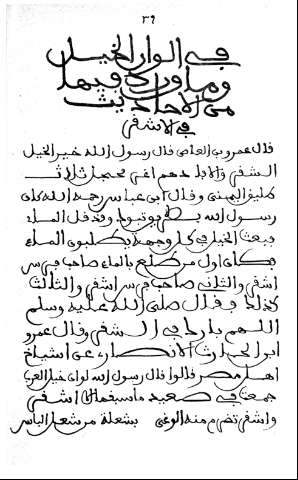 ٣٩
في الوان الخيل
وما ورد فيها
من الاحاديث
في الاشقر
قال عمرو بن العاصي قال رسول الله خير الخيل
الشقر والا فادهم اغر محجل ثلاث
طليق اليمنى وقال ابن عباس رحمه الله كان
رسول الله بطريق تبوك وقد قل الماء
فبعث الخيل في كل وجهة يطلبون الماء
فكان اول من طلع بالماء صاحب فرس
اشقر والثاني صاحب فرس اشقر والثالث
كذلك فقال صلى الله عليه وسلم
اللهم بارك في الشقر وقال عمرو
ابن الحارث الانصاري عن اشياخ
اهل مصر قالوا قال رسول الله لو ان خيل العرب
جمعت في صعيد ما سبقها الا اشقر
واشقر تضرم منه الوغى بشعلة من شعل الباس